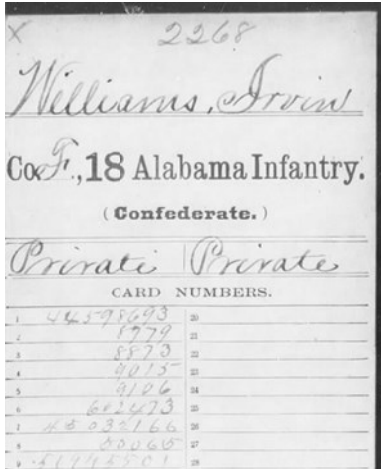 X 2268
Williams, Irvin
Co. F., 18 Alabama Infantry.
(Confederate.)
Private Private
CARD NUMBERS.
1 44598693 20
2 8779 21
3 8873 22
4 9015 23
5 9106 24
6 602473 25
7 45032166 26
8 50065 27
9 28